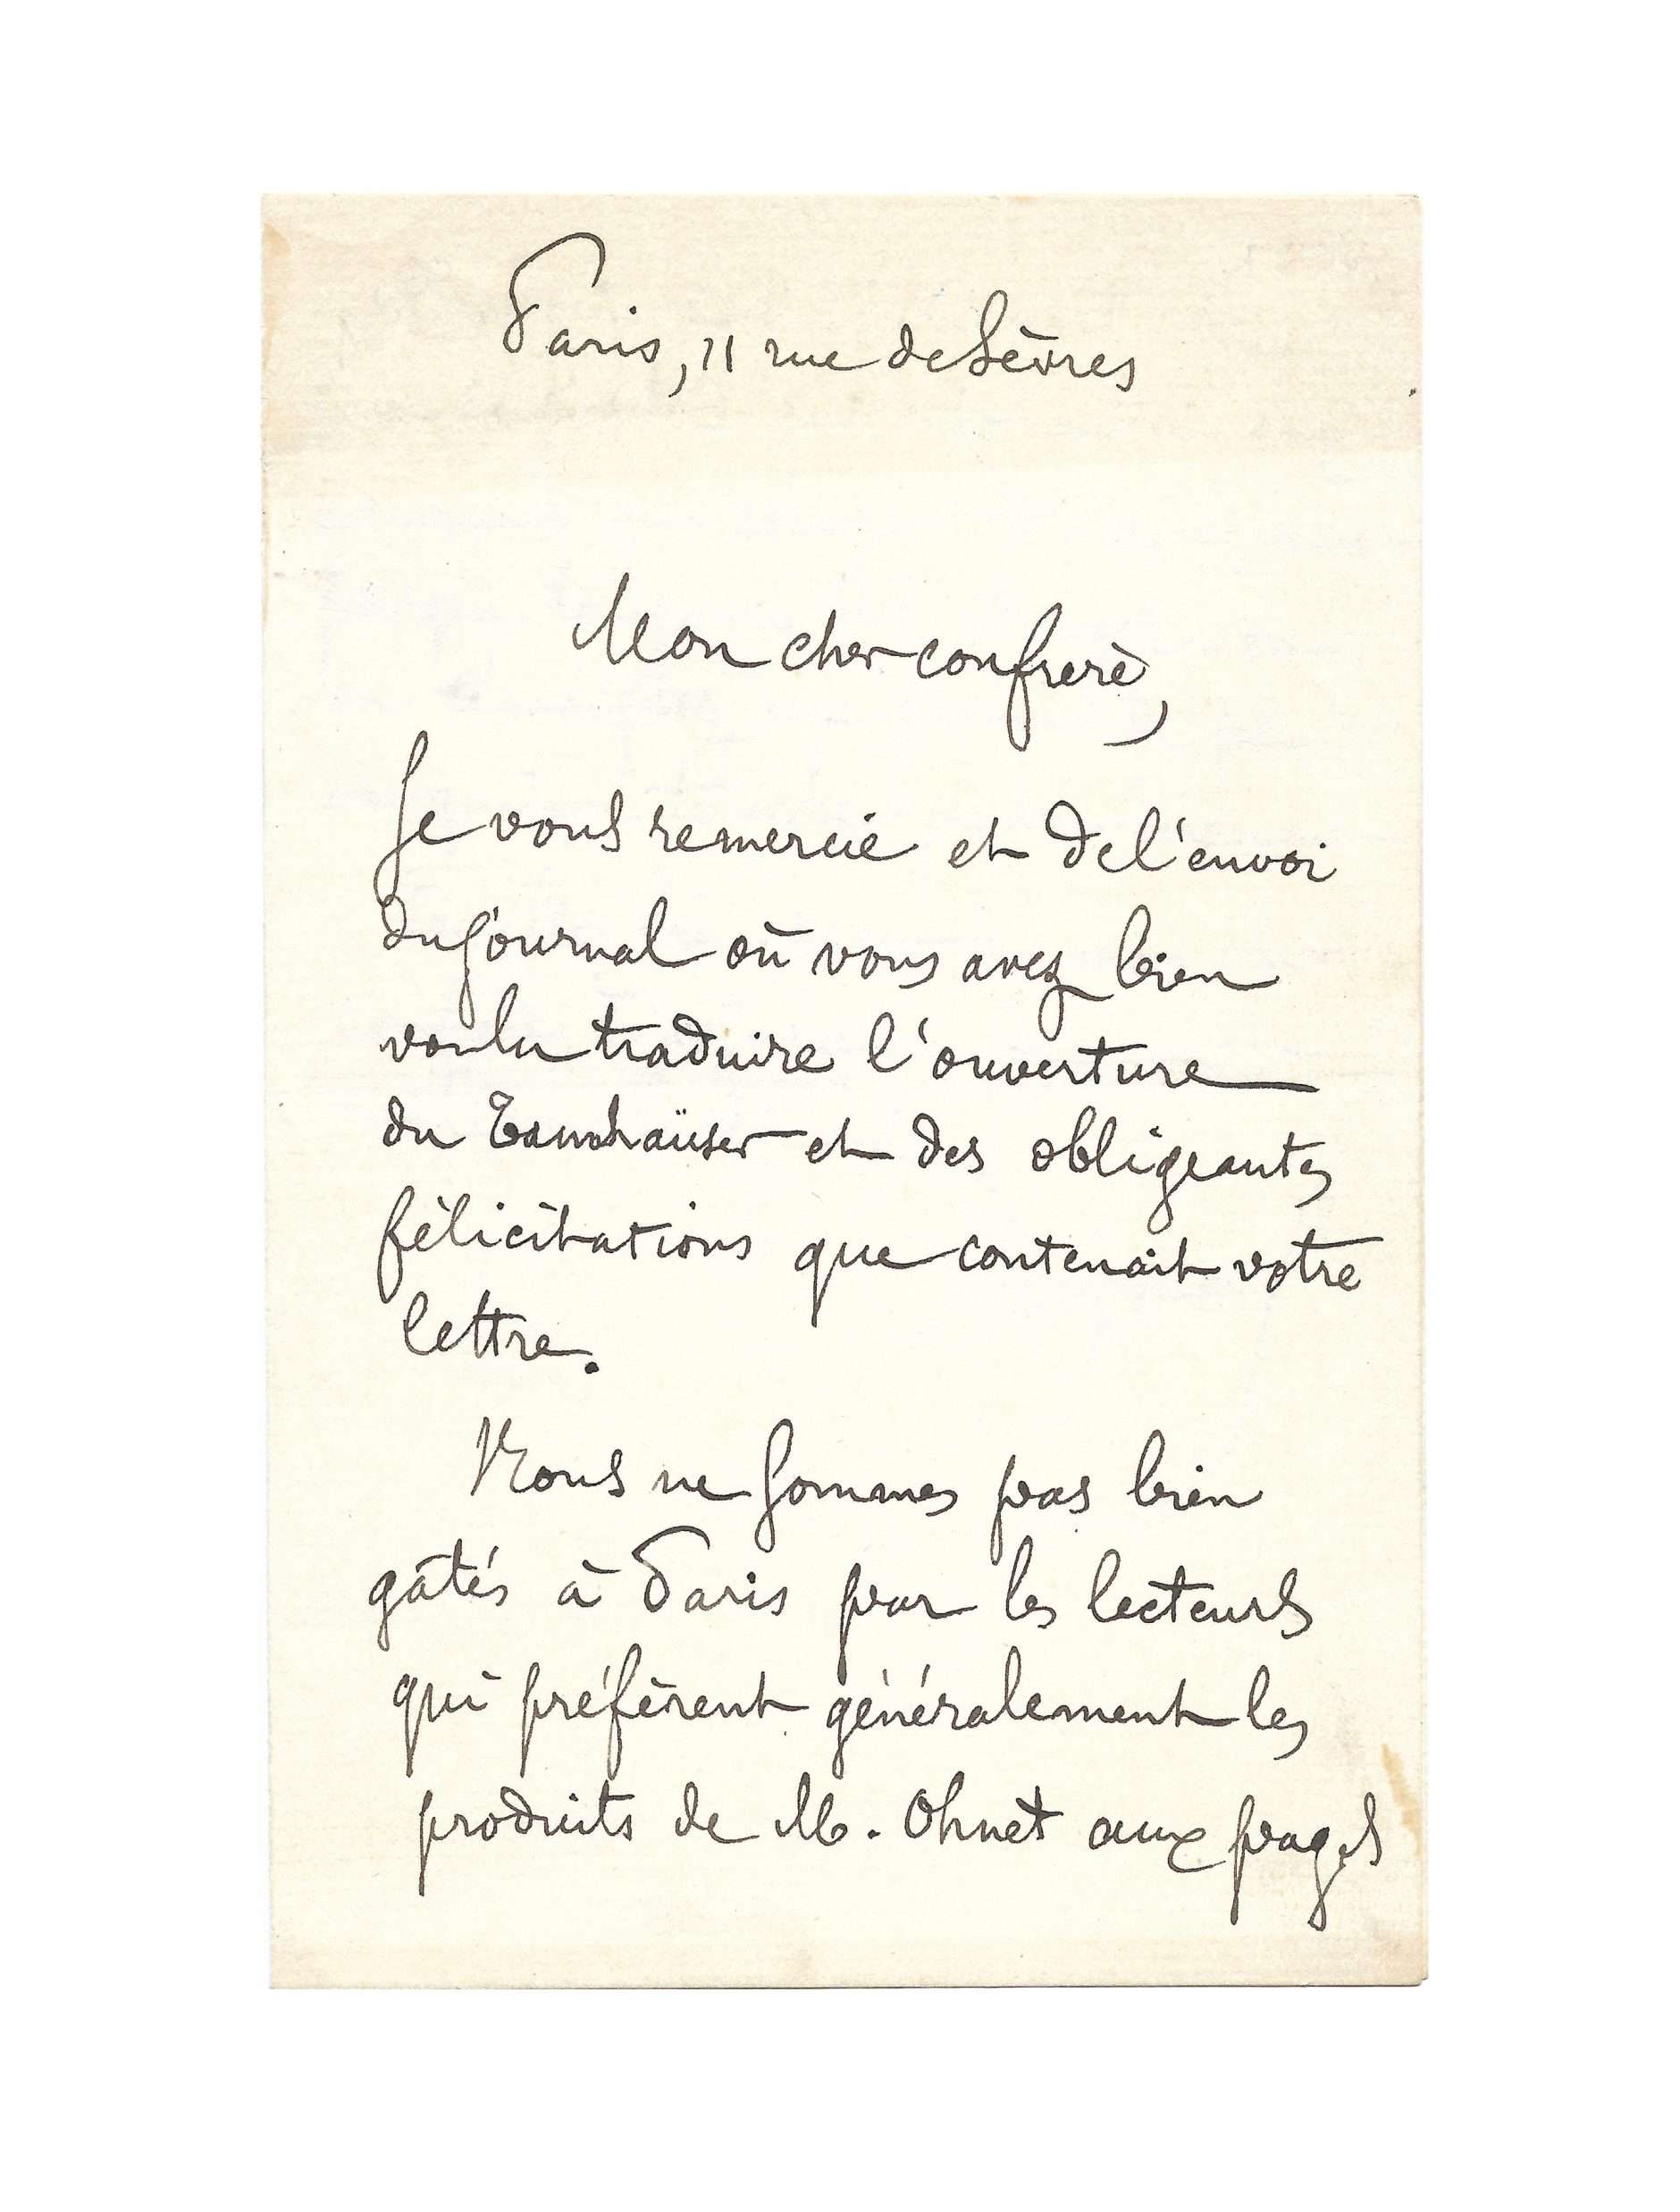 Paris, 11 rue de Sèvres
Mon cher confrère,
Je vous remercie et de l'envoi
du journal où vous avez bien
voulu traduire l'ouverture
du Tannhaüser et des obligeantes
félicitations que contenait votre
lettre.
Nous ne sommes pas bien
gâtés à Paris par les lecteurs
qui préfèrent généralement les
produits de M. Ohnet aux pages